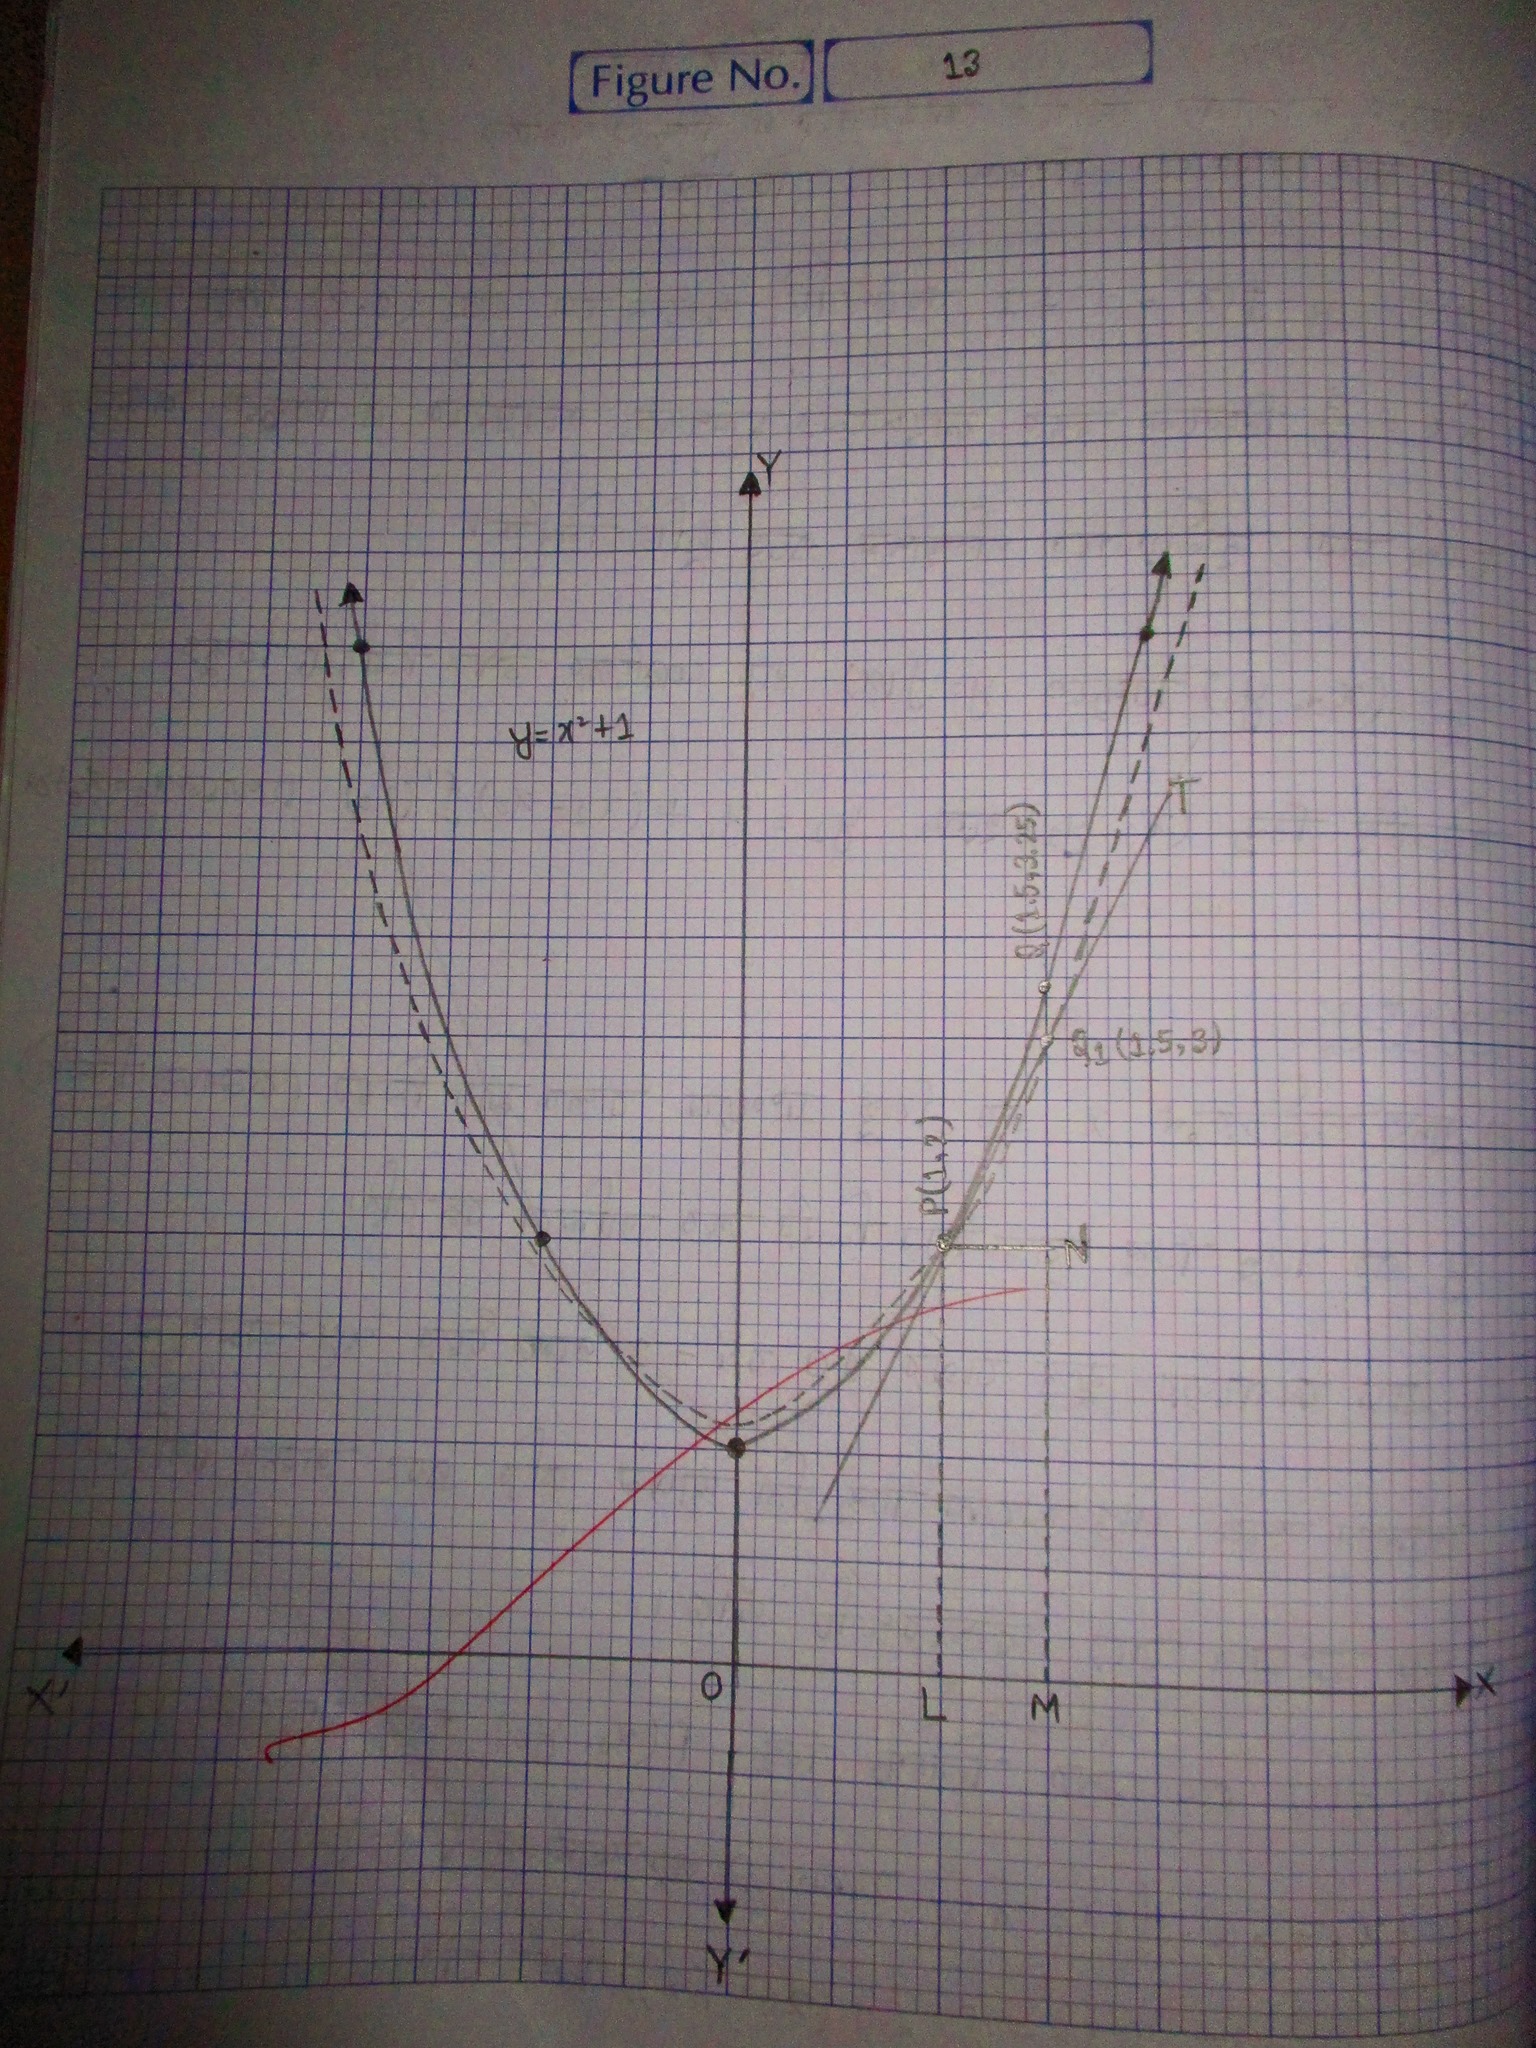 Figure No. 13
Y
y=x²+1
T
Q(1.5,3.25)
Q1(1.5,3)
P(1,2)
N
X'
O
L
M
X
Y'